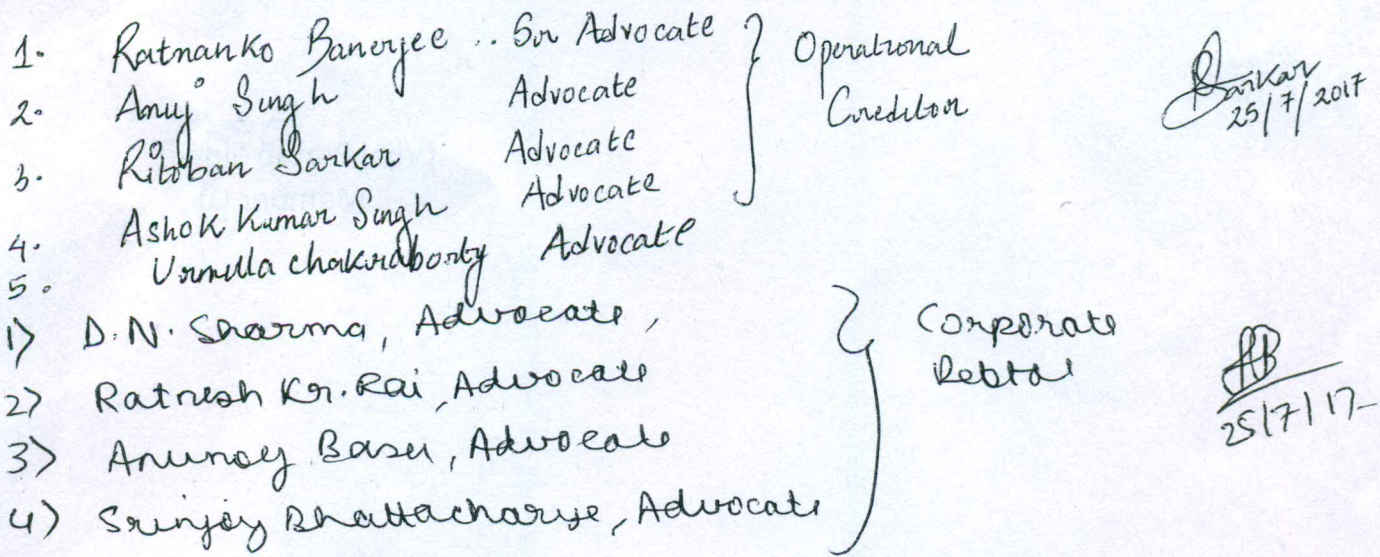 1. Ratnanko Banerjee .. Sr Advocate
2. Anuj Singh Advocate
3. Ritoban Sarkar Advocate
4. Ashok Kumar Singh Advocate
5. Urmilla chakraborty Advocate
Operational
Creditor
Sarkar
25/7/2017
1) D.N. Sharma, Advocate,
2) Ratnesh Kr. Rai, Advocate
3) Anunoy Basu, Advocate
4) Srinjoy Bhattacharye, Advocate
Corporate
Debtor
25/7/17